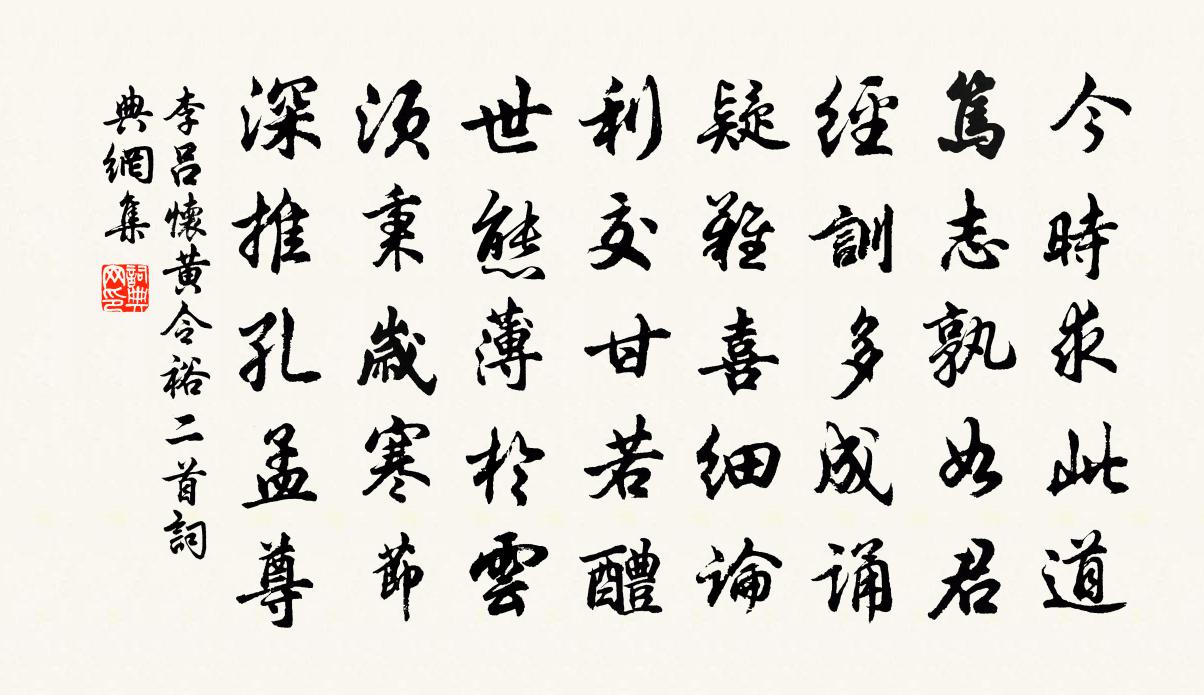 今時求此道
篤志孰如君
經訓多成誦
疑難喜細論
利交甘若醴
世態薄於雲
須秉歲寒節
深推孔孟尊
李呂懷黄令裕二首詞
典網集
詞典
网印